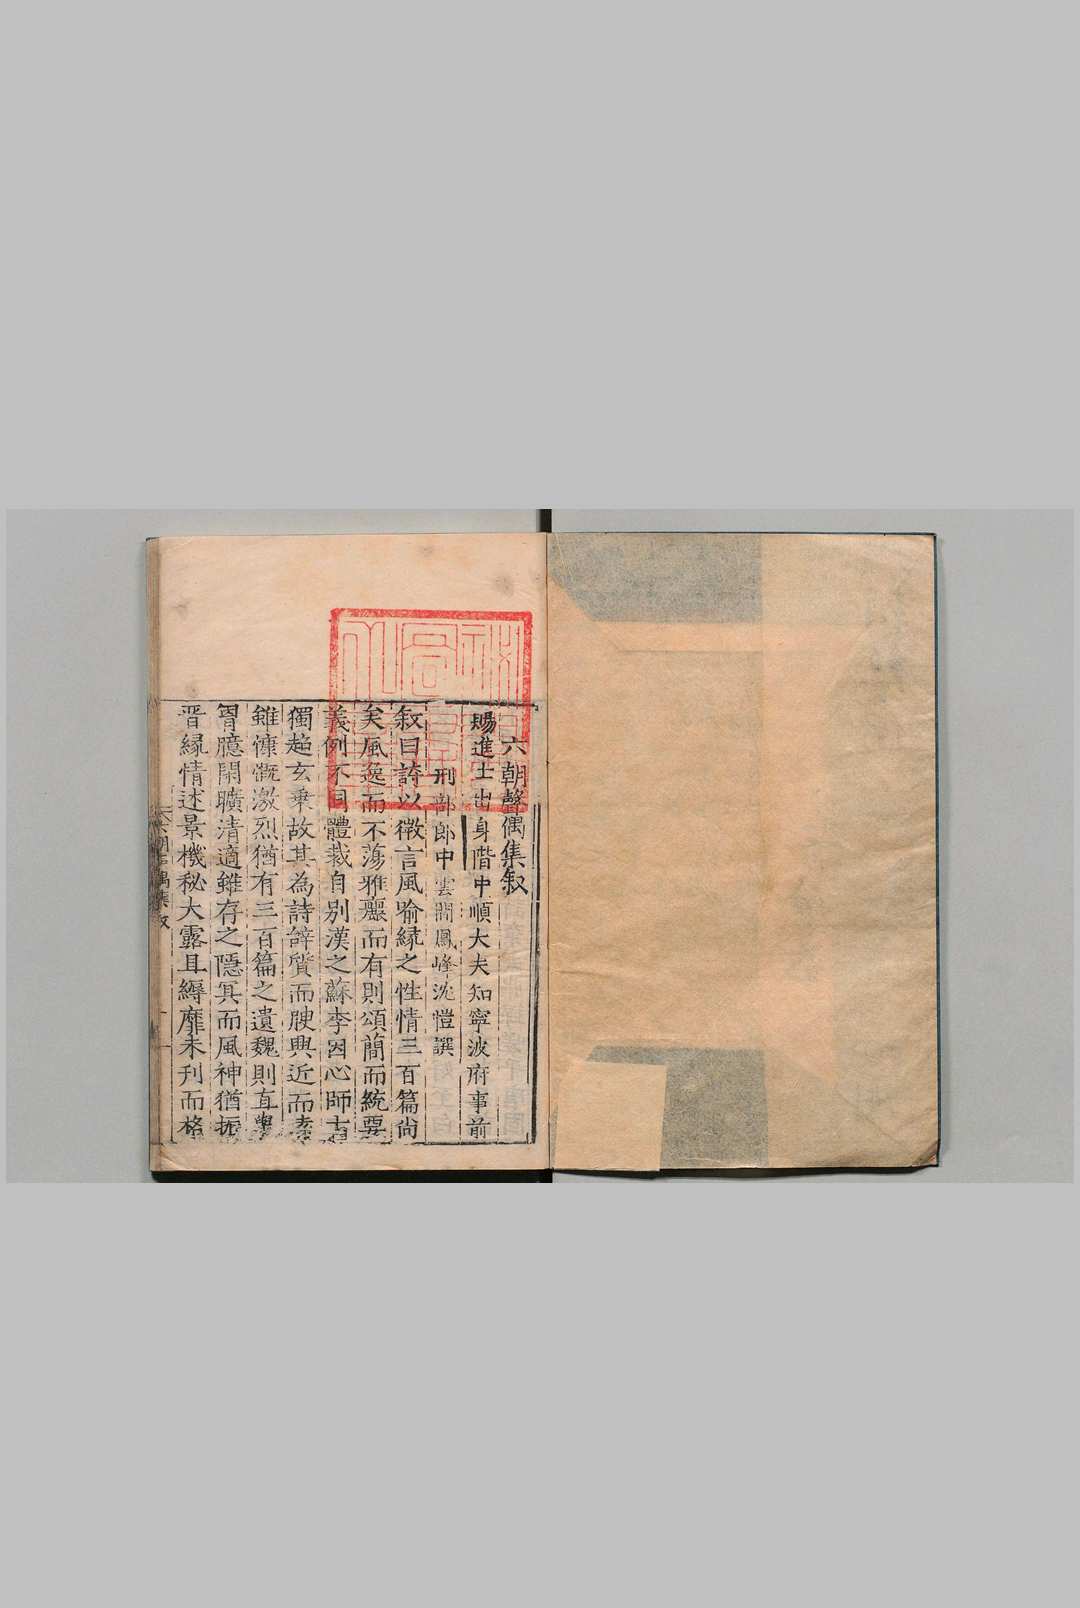 六朝聲偶集叙
賜進士出身階中順大夫知寧波府事前
刑部郎中雲間鳳峰沈愷譔
叙曰詩以徵言風喻緣之性情三百篇尚
矣風逸而不蕩雅麗而有則頌簡而統要
義例不同體裁自别漢之蘇李因心師古
獨超玄乗故其為詩辭質而腴興近而
雖慷慨激烈猶有三百篇之遺魏則直舉
胷臆閑曠清適雖存之隱冥而風神猶振
晋緣情述景機秘大露且縟靡未刋而格